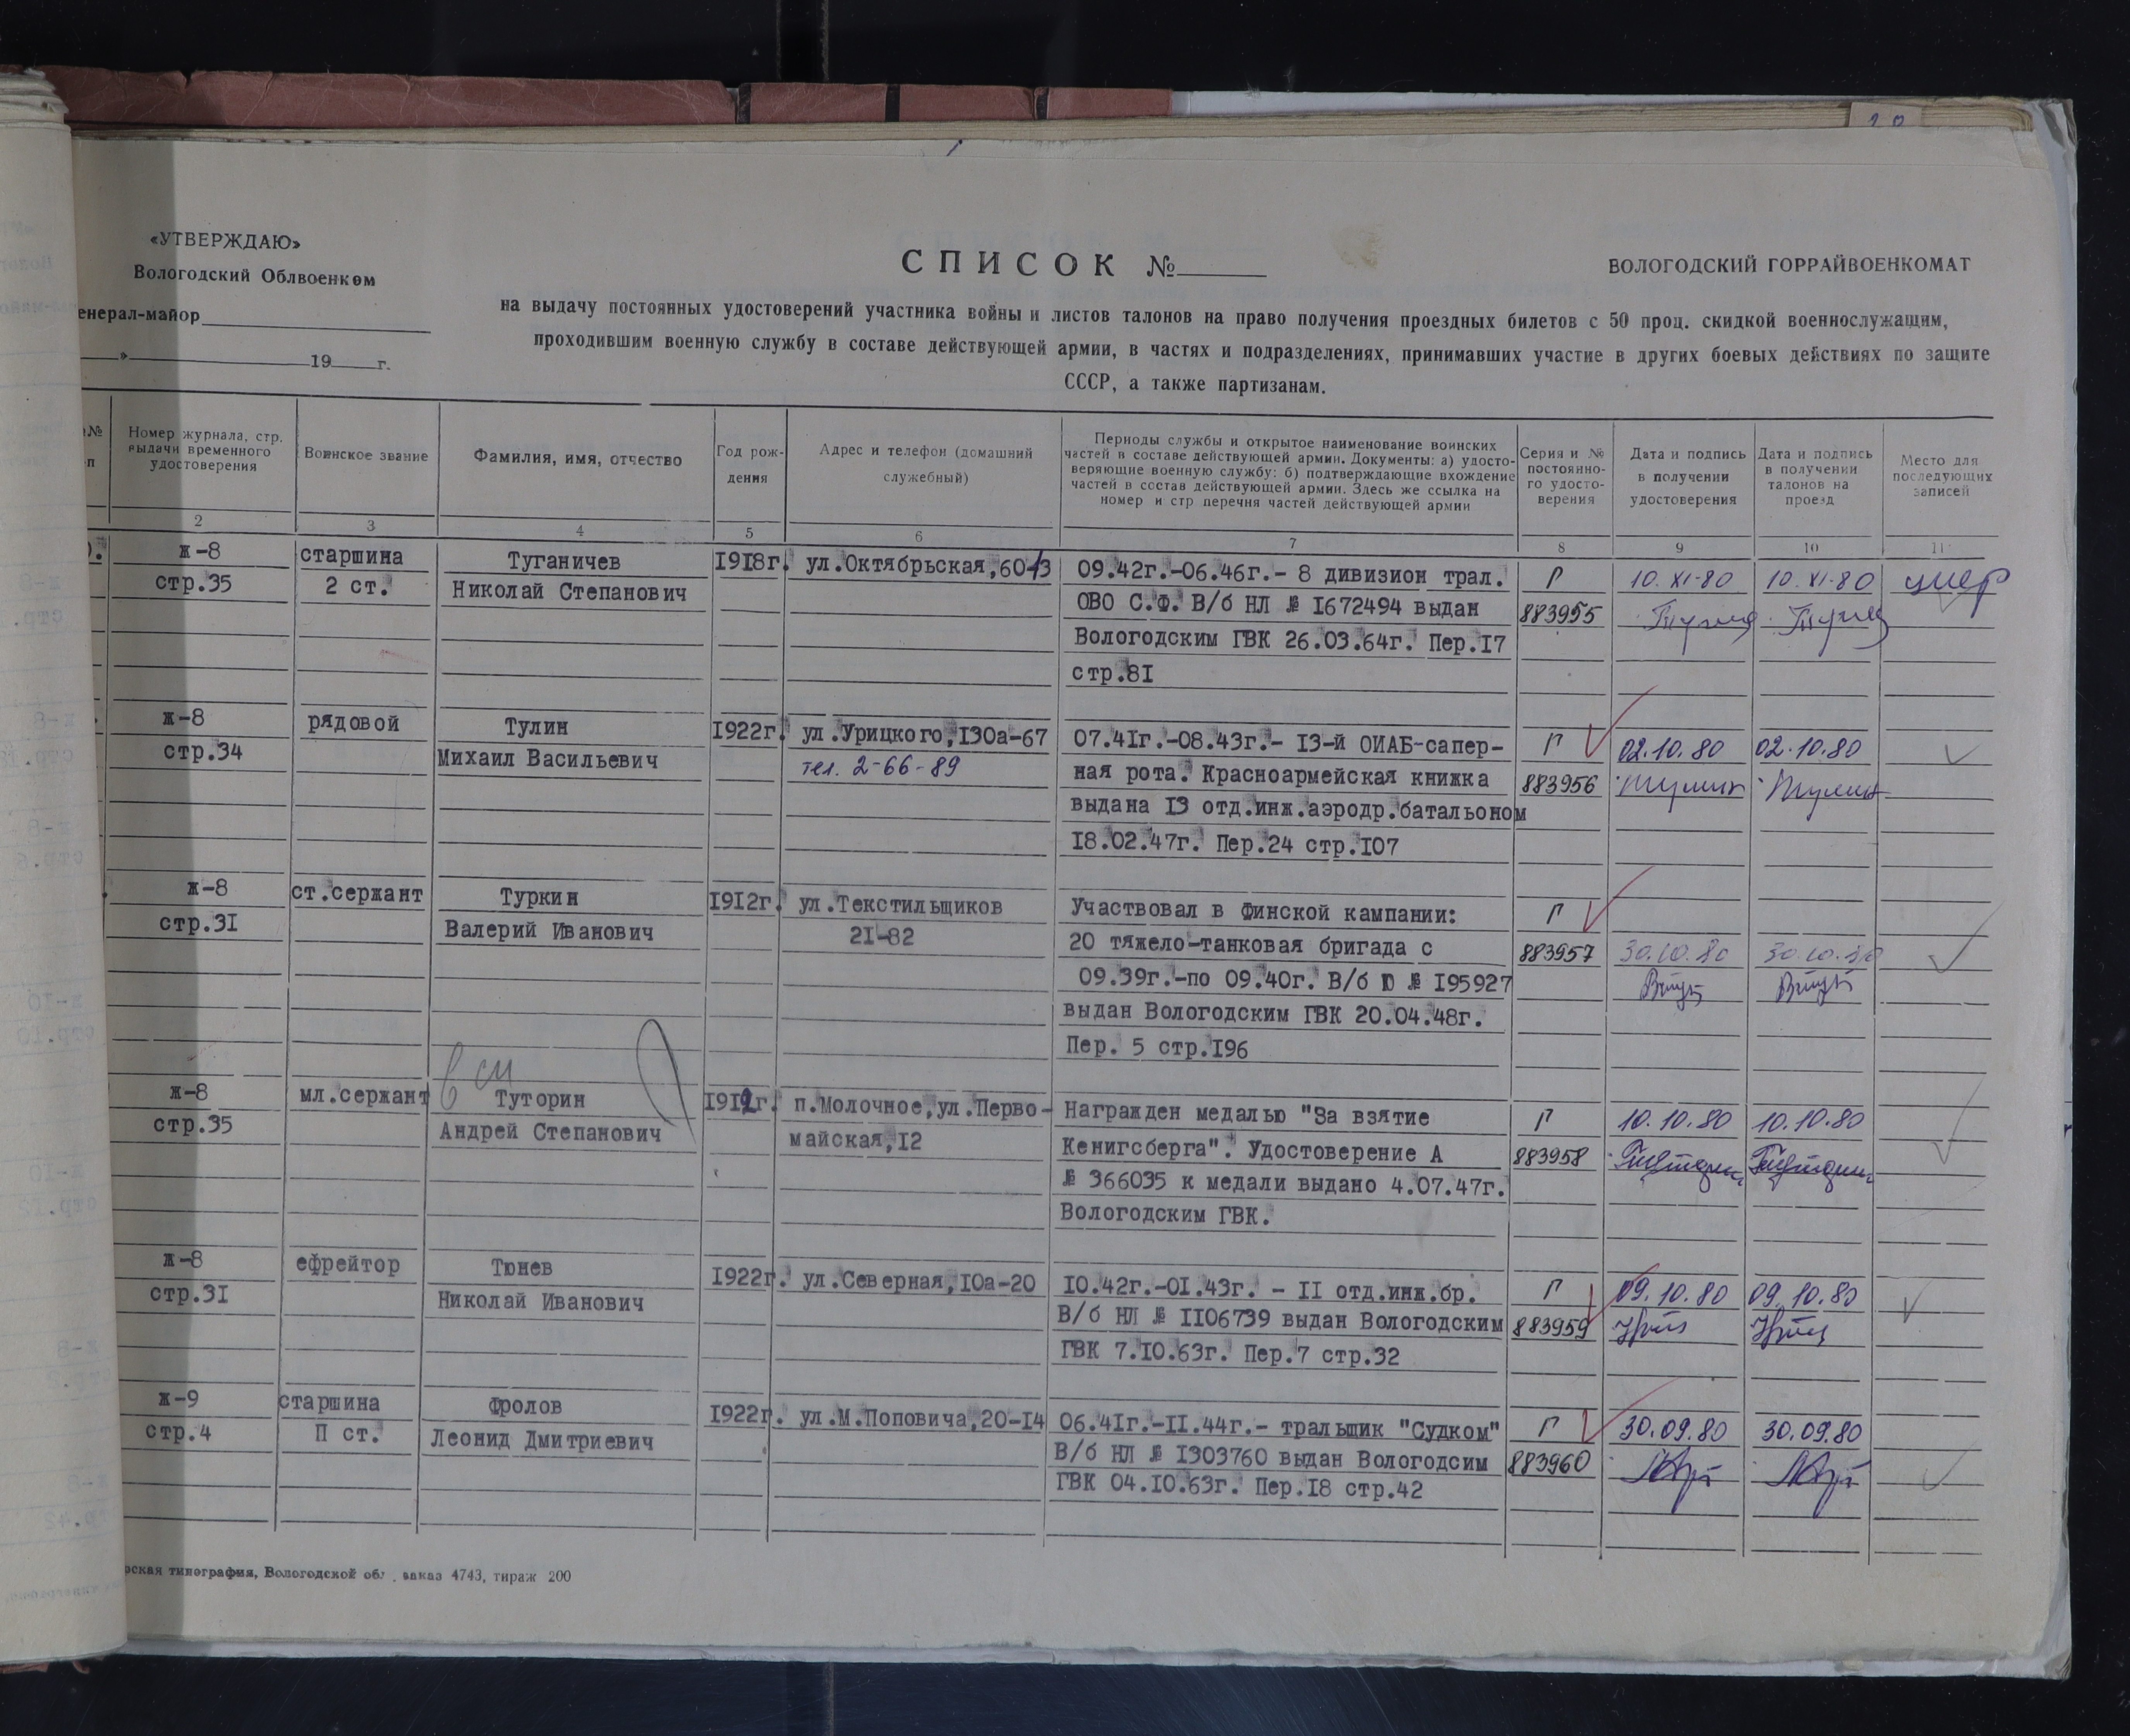 «УТВЕРЖДАЮ»
Вологодский Облвоенком
енерал-майор
» 19 г.
СПИСОК №
ВОЛОГОДСКИЙ ГОРРАЙВОЕНКОМАТ
на выдачу постоянных удостоверений участника войны и листов талонов на право получения проездных билетов с 50 проц. скидкой военнослужащим,
проходившим военную службу в составе действующей армии, в частях и подразделениях, принимавших участие в других боевых действиях по защите
СССР, а также партизанам.
№
п
Номер журнала, стр.
выдачи временного
удостоверения
Воинское звание
Фамилия, имя, отчество
Год рож-
дения
Адрес и телефон (домашний
служебный)
Периоды службы и открытое наименование воинских
частей в составе действующей армии. Документы: а) удосто-
веряющие военную службу: б) подтверждающие вхождение
частей в состав действующей армии. Здесь же ссылка на
номер и стр перечня частей действующей армии
Серия и №
постоянно-
го удосто-
верения
Дата и подпись
в получении
удостоверения
Дата и подпись
в получении
талонов на
проезд
Место для
последующих
записей
2 3 4 5 6 7 8 9 10 11
ж-8
стр.35
старшина
2 ст.
Туганичев
Николай Степанович
1918г.
ул.Октябрьская,60-13
09.42г.-06.46г.- 8 дивизион трал.
ОВО С.Ф. В/б НЛ № I672494 выдан
Вологодским ГВК 26.03.64г. Пер.I7
стр.8I
Г
883955
10.XI-80
10.XI-80
умер
ж-8
стр.34
рядовой
Тулин
Михаил Васильевич
1922г.
ул.Урицкого,I30а-67
тел. 2-66-89
07.4Iг.-08.43г.- I3-й ОИАБ-сапер-
ная рота. Красноармейская книжка
выдана I3 отд.инж.аэродр.батальоном
I8.02.47г. Пер.24 стр.I07
Г
883956
02.10.80
02.10.80
ж-8
стр.3I
ст.сержант
Туркин
Валерий Иванович
1912г.
ул.Текстильщиков
2I-82
Участвовал в Финской кампании:
20 тяжело-танковая бригада с
09.39г.-по 09.40г. В/б Ю № I95927
выдан Вологодским ГВК 20.04.48г.
Пер. 5 стр.I96
Г
883957
30.10.80
30.10.80
ж-8
стр.35
мл.сержант
Туторин
Андрей Степанович
1912г.
п.Молочное,ул.Перво-
майская,I2
Награжден медалью "За взятие
Кенигсберга". Удостоверение А
№ 366035 к медали выдано 4.07.47г.
Вологодским ГВК.
Г
883958
10.10.80
10.10.80
ж-8
стр.3I
ефрейтор
Тюнев
Николай Иванович
1922г.
ул.Северная,I0а-20
I0.42г.-0I.43г. - II отд.инж.бр.
В/б НЛ № II06739 выдан Вологодским
ГВК 7.I0.63г. Пер.7 стр.32
Г
883959
09.10.80
09.10.80
ж-9
стр.4
старшина
П ст.
Фролов
Леонид Дмитриевич
1922г.
ул.М.Поповича,20-I4
06.4Iг.-II.44г.- тральщик "Судком"
В/б НЛ № I303760 выдан Вологодсим
ГВК 04.I0.63г. Пер.I8 стр.42
Г
883960
30.09.80
30.09.80
рская типография, Вологодской обл. заказ 4743, тираж 200